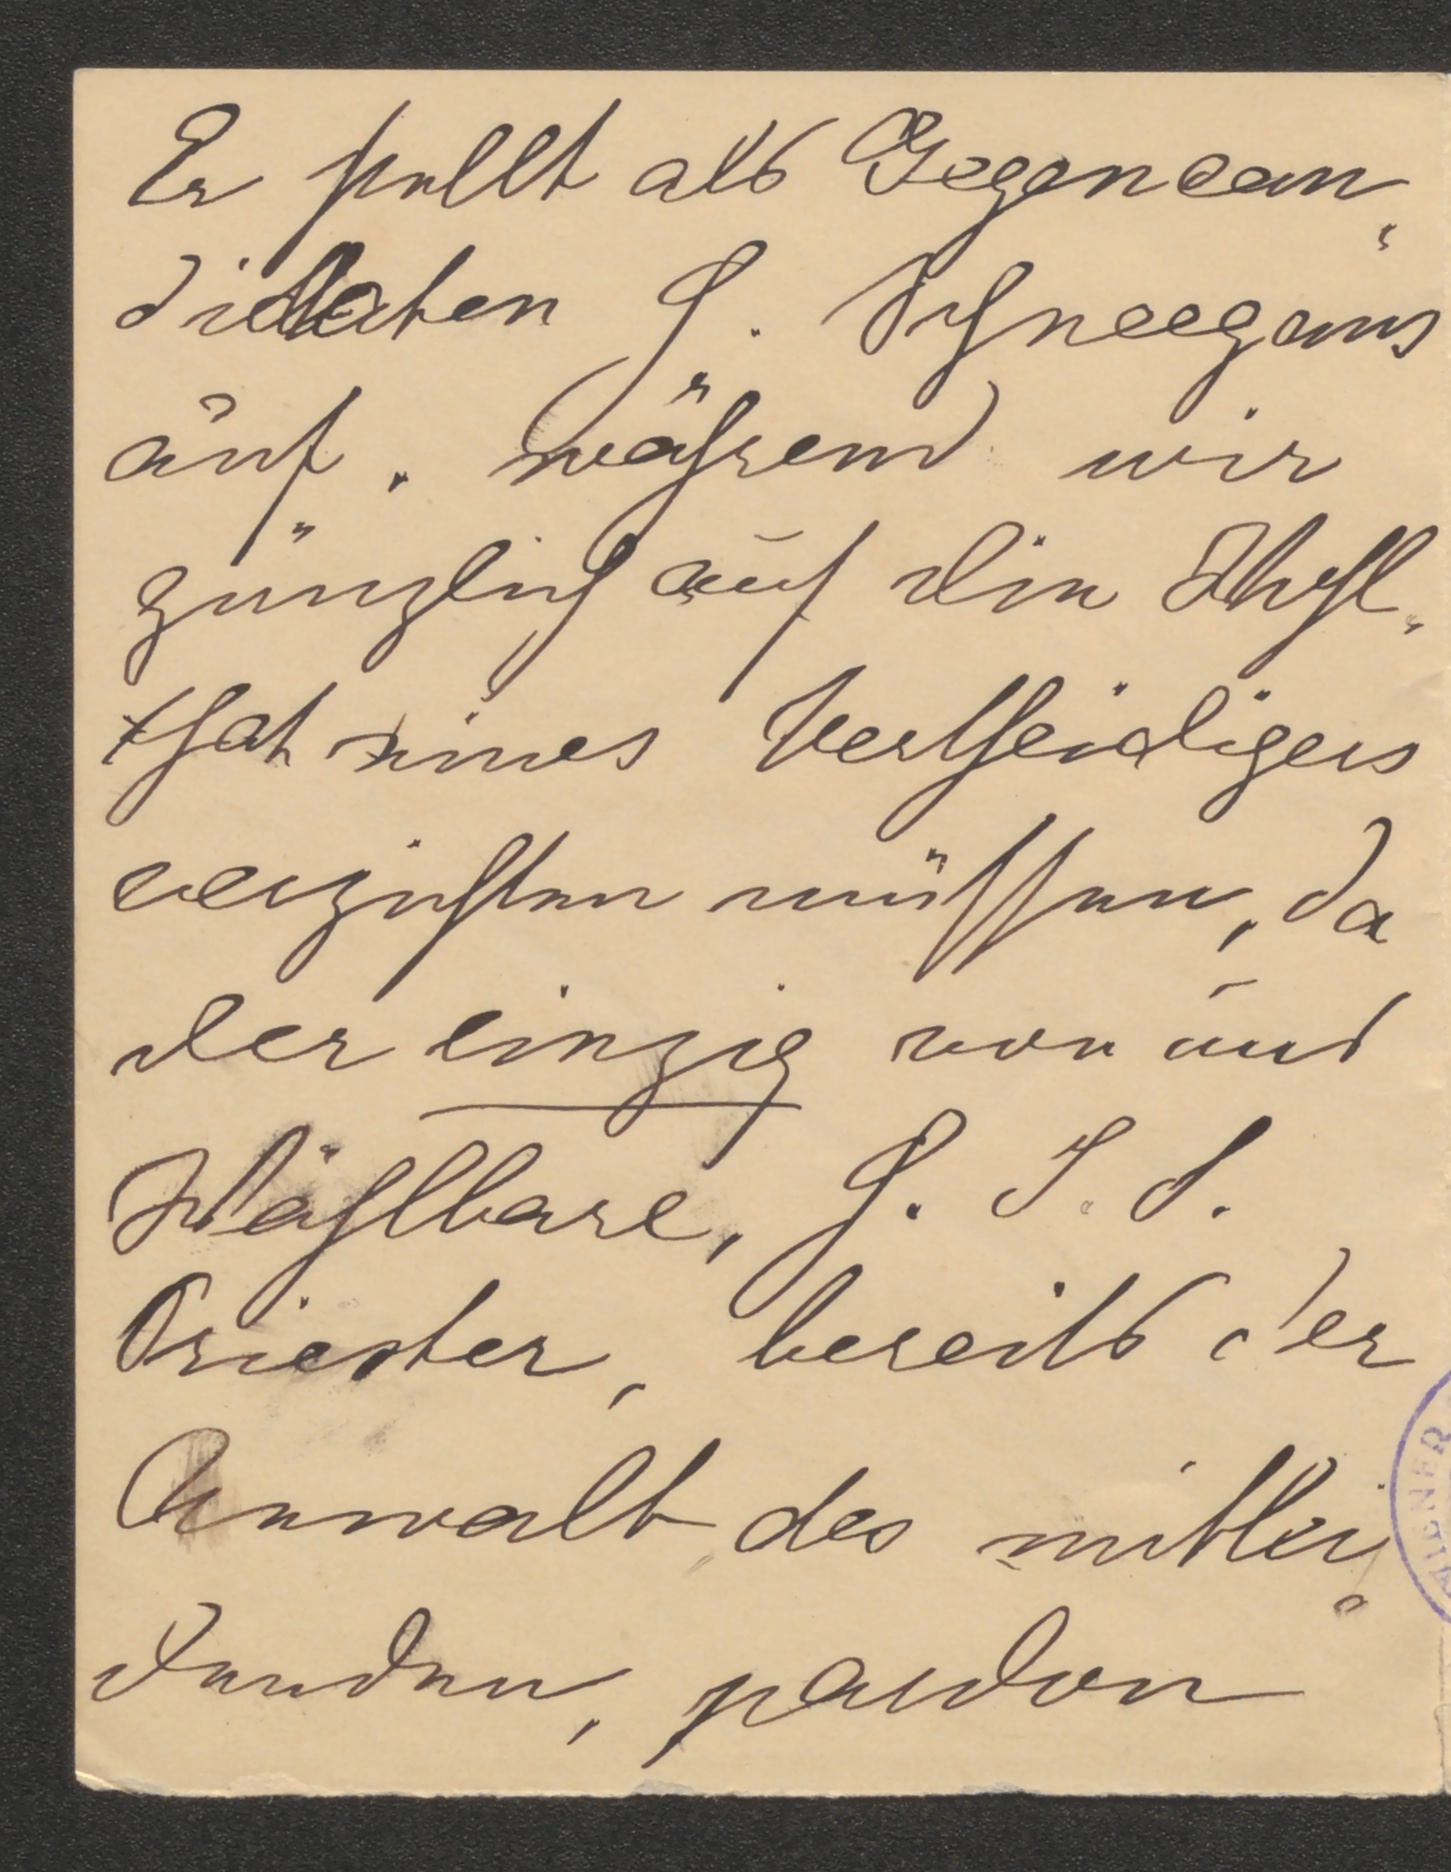 Er stellt als Gegencan-
didaten H. Schneegans
auf. während wir
gänzlich auf die Wohl-
that eines Vertheidigers
verzichten müssen, da
der einzig von uns
Wählbare, H. J. S.
Priester, bereits der
Anwalt des mitlei-
denden, pardon